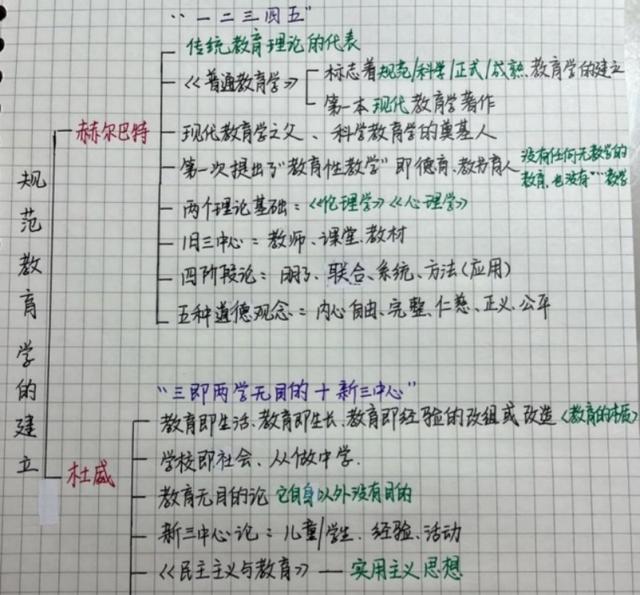 "一二三四五"
传统教育理论的代表
《普通教育学》
标志着规范/科学/正式/成熟教育学的建立
第一本现代教育学著作
赫尔巴特
现代教育学之父、科学教育学的奠基人
第一次提出了"教育性教学"即德育、教书育人
没有任何无教学的
教育,也没有……教学
两个理论基础:《伦理学》《心理学》
旧三中心:教师、课堂、教材
四阶段论:明了、联合、系统、方法(应用)
五种道德观念:内心自由、完整、仁慈、正义、公平
规范教育学的建立
"三即两学无目的+新三中心"
教育即生活、教育即生长、教育即经验的改组或改造《教育的本质》
杜威
学校即社会、从做中学.
教育无目的论 它自身以外没有目的
新三中心论:儿童/学生、经验、活动
《民主主义与教育》—实用主义思想